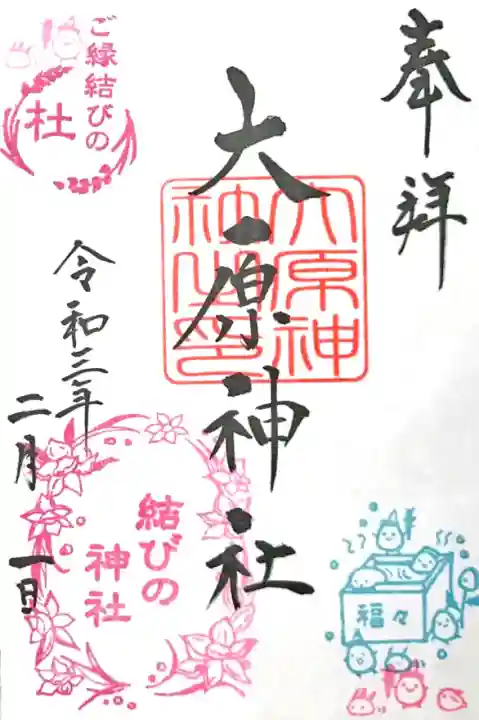 奉拝
大原神社
大原神
社之印
令和三年
二月一日
ご縁結びの
社
結びの
神社
福々